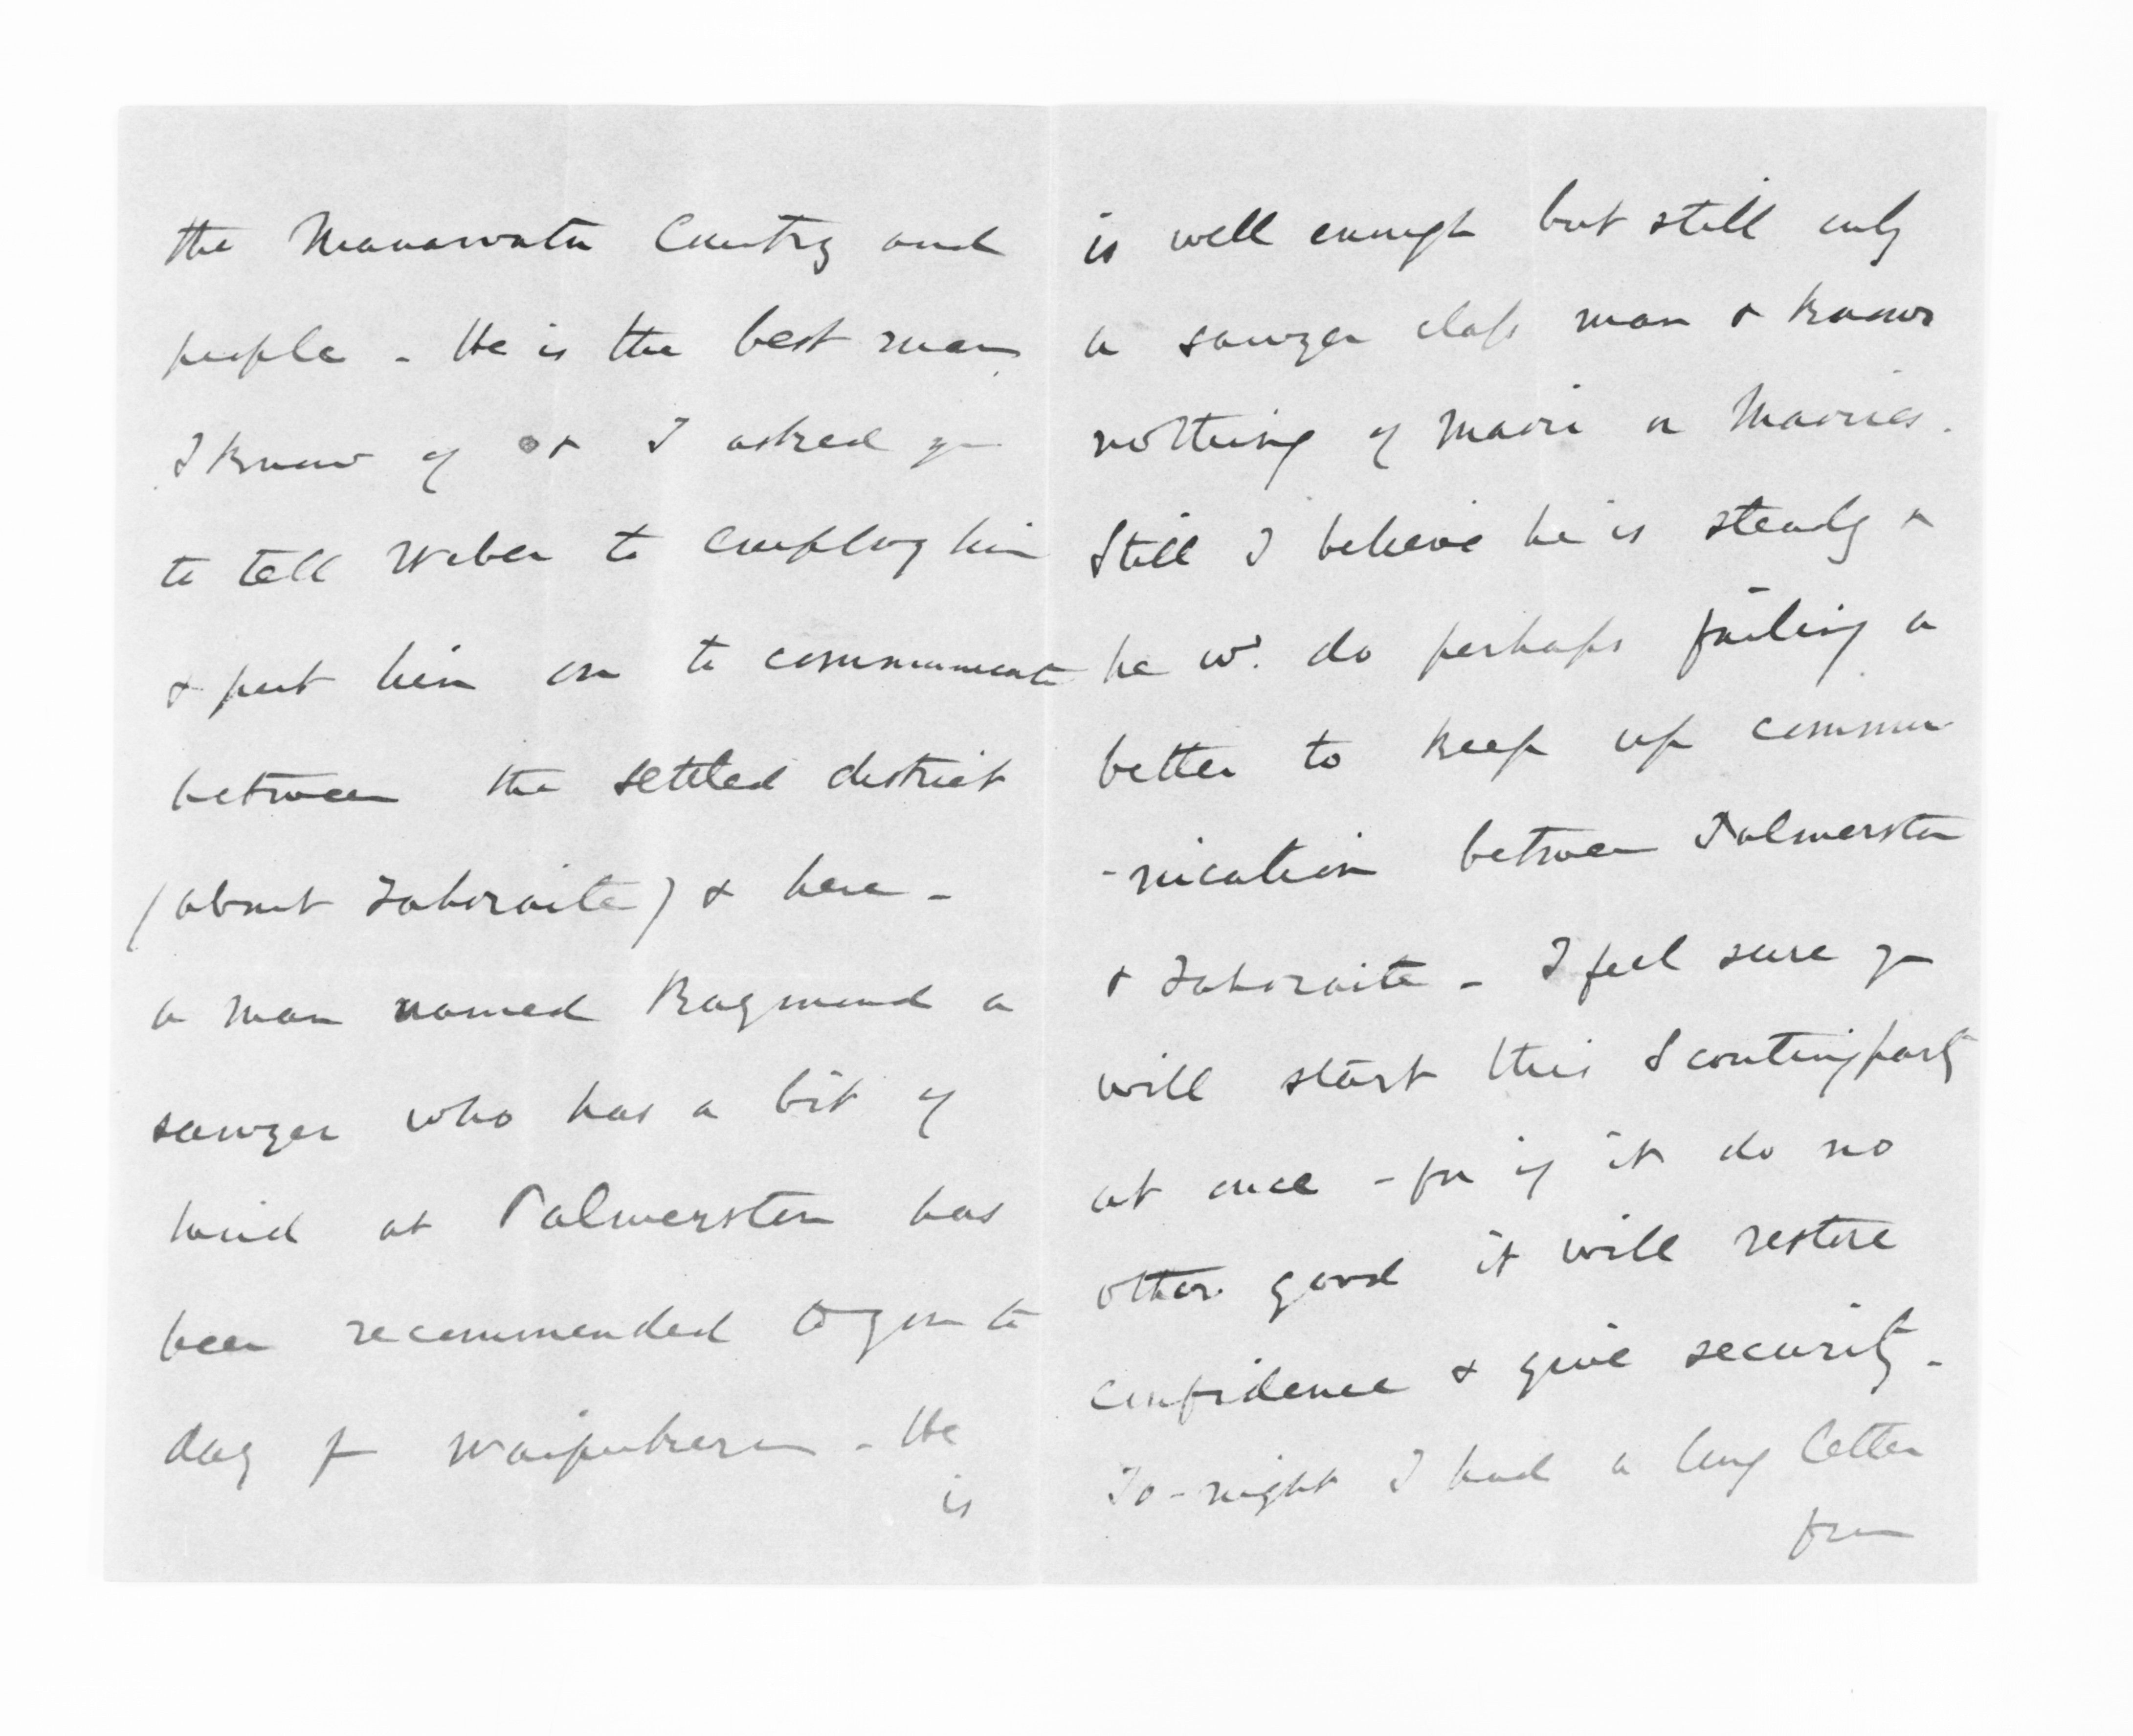 the Manawatu Country and
people - He is the best man
I know of & I asked you
to tell Weber to employ him
& put him on to communicate
between the settled district
(about Tahoraite) & here -
a man named Raymond a
sawyer who has a bit of
land at Palmerston has
been recommended to you to
day fm Waipukurau - He
is
is well enough but still only
a sawyer class man & knows
nothing of Maori or Maories.
Still I believe he is steady &
he wd. do perhaps failing a
better to keep up commu
-nication between Palmerston
& Tahoraite - I feel sure you
will start this Scouting party
at once - for if it do no
other good it will restore
confidence & give security -
To-night I had a long letter
from